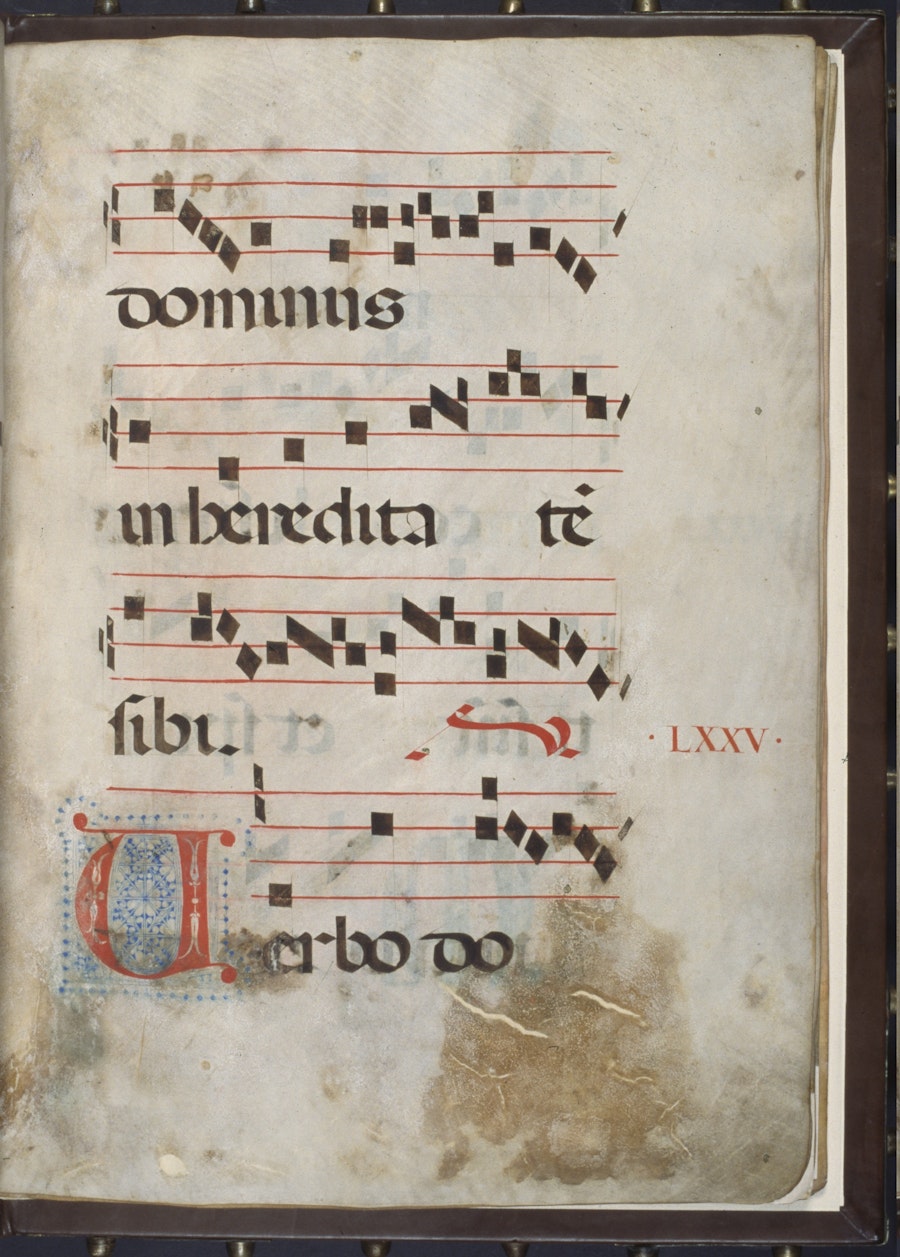 dominus
in heredita tē
sibi. V
· LXXV ·
Uerbo do